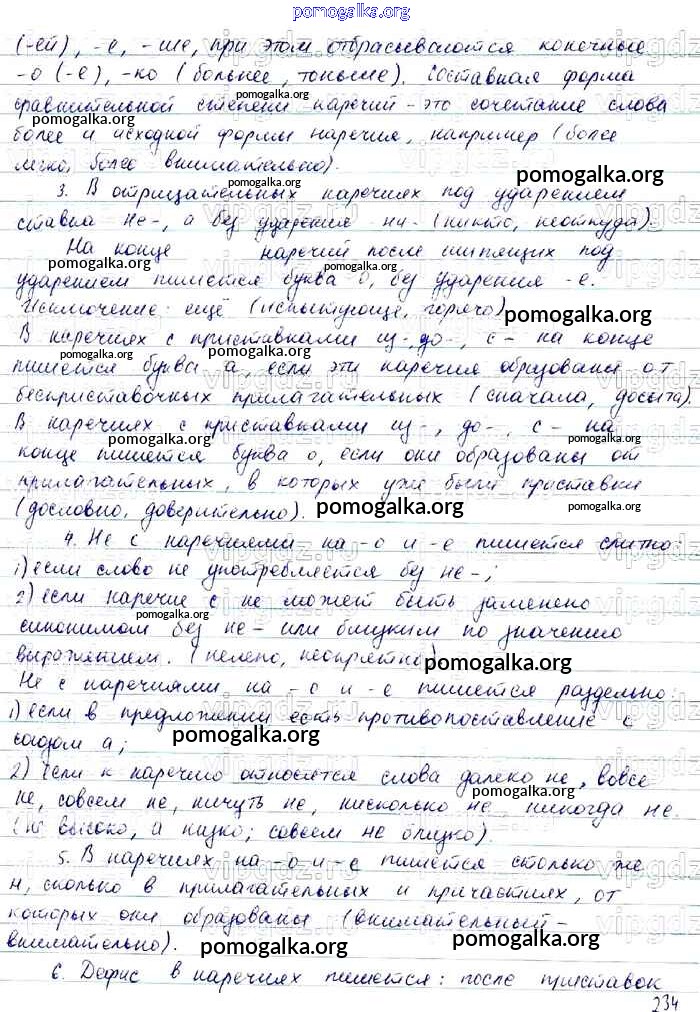 pomogalka.org
(-ей), -е, -ше, при этом отбрасываются конечные
-о (-е), -ко (больнее, тоньше). Составная форма
сравнительной степени наречий - это сочетание слова
более и исходной формы наречия, например (более
легко, более внимательно).
3. В отрицательных наречиях под ударением
ставка не-, а без ударения - ни- (никто, неоткуда).
На конце наречий после шипящих под
ударением пишется буква о, без ударения -е.
Исключение ещё (испытующе, горячо)
В наречиях с приставками из-, до-, с- на конце
пишется буква а, если эти наречия образованы от
бесприставочных прилагательных (сначала, досыта).
В наречиях с приставками из-, до-, с- на
конце пишется буква о, если они образованы от
прилагательных, в которых уже были приставки
(дословно, доверительно).
4. Не с наречиями на -о и -е пишется слитно:
1) если слово не употребляется без не-;
2) если наречие с не может быть заменено
синонимом без не- или близким по значению
выражением. (нелепо, неопрятно)
Не с наречиями на -о и -е пишется раздельно:
1) если в предложении есть противопоставление с
союзом а;
2) Если к наречию относятся слова далеко не, вовсе
не, совсем не, ничуть не, нисколько не, никогда не.
(не высоко, а низко; совсем не близко).
5. В наречиях на -о и -е пишется столько же
н, сколько в прилагательных и причастиях, от
которых они образованы (внимательный -
внимательно).
6. Дефис в наречиях пишется: после приставок
234